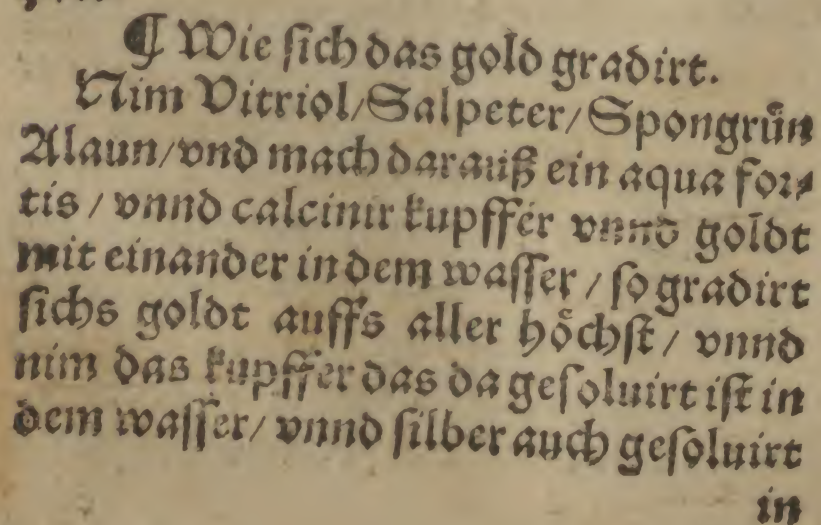 ¶ Wie sich das gold gradirt.
Nim Vitriol/Salpeter/Spongrůn
Alaun/vnd mach darauß ein aqua for⸗
tis / vnnd calcinir kupffer vnnd goldt
mit einander in dem wasser / so gradirt
sichs goldt auffs aller hoͤchst / vnnd
nim das kupffer das da gesoluirt ist in
dem wasser/ vnnd silber auch gesoluirt
in